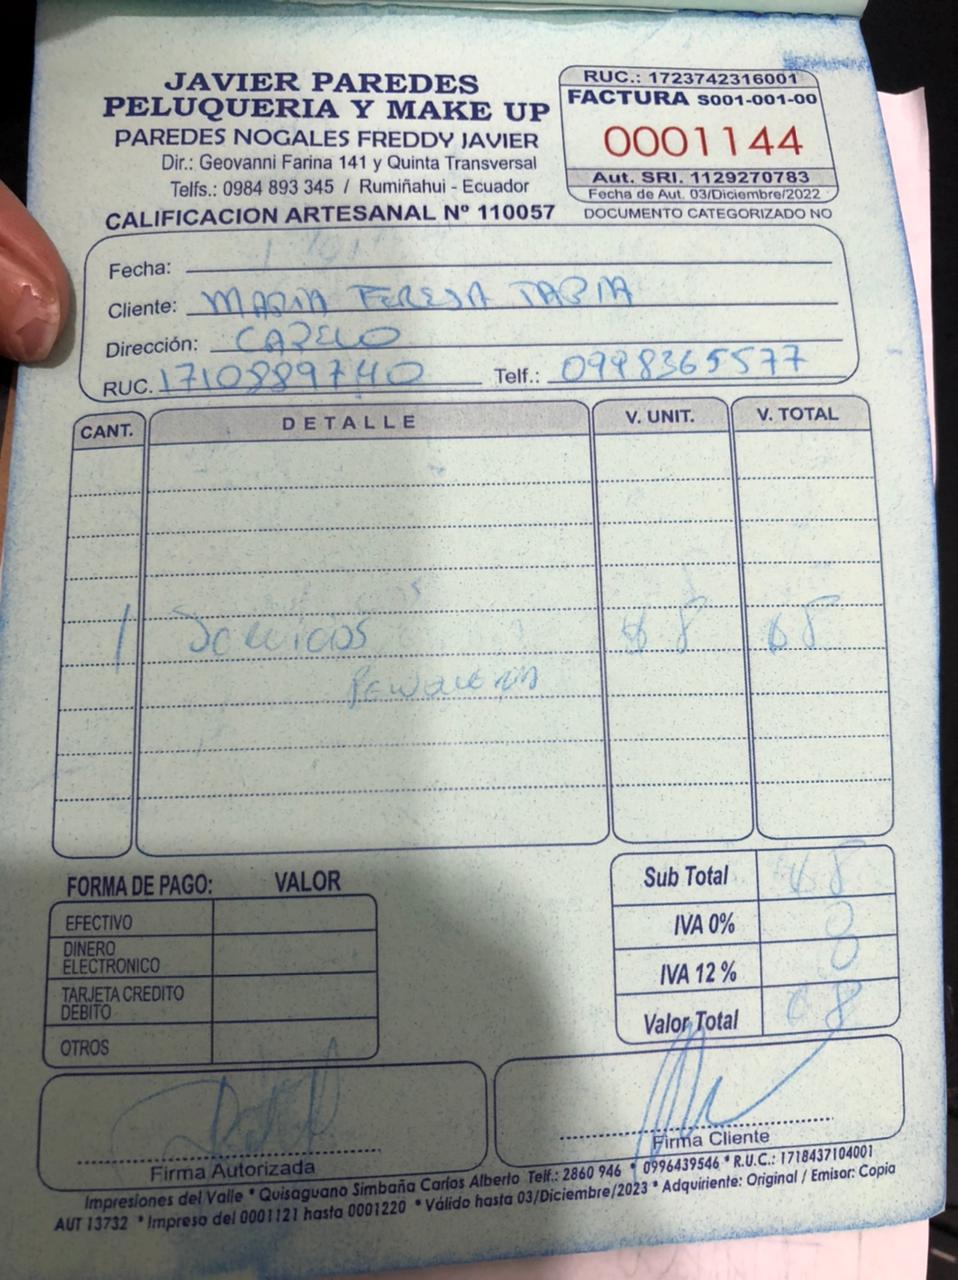 JAVIER PAREDES
PELUQUERIA Y MAKE UP
PAREDES NOGALES FREDDY JAVIER
Dir.: Geovanni Farina 141 y Quinta Transversal
Telfs.: 0984 893 345 / Rumiñahui - Ecuador
CALIFICACION ARTESANAL Nº 110057
RUC.: 1723742316001
FACTURA S001-001-00
0001144
Aut. SRI. 1129270783
Fecha de Aut. 03/Diciembre/2022
DOCUMENTO CATEGORIZADO NO
Fecha:
Cliente: MARIA TERESA TAPIA
Dirección: CAPELO
RUC. 1710889740 Telf.: 0998365577
CANT. DETALLE V. UNIT. V. TOTAL
1 Servicios $8 $8
Peluqueria
FORMA DE PAGO: VALOR
EFECTIVO
DINERO
ELECTRONICO
TARJETA CREDITO
DEBITO
OTROS
Sub Total $8
IVA 0% 0
IVA 12 % 0
Valor Total $8
Firma Autorizada
Firma Cliente
Impresiones del Valle * Quisaguano Simbaña Carlos Alberto Telf.: 2860 946 * 0996439546 * R.U.C.: 1718437104001
AUT 13732 * Impreso del 0001121 hasta 0001220 * Válido hasta 03/Diciembre/2023 * Adquiriente: Original / Emisor: Copia